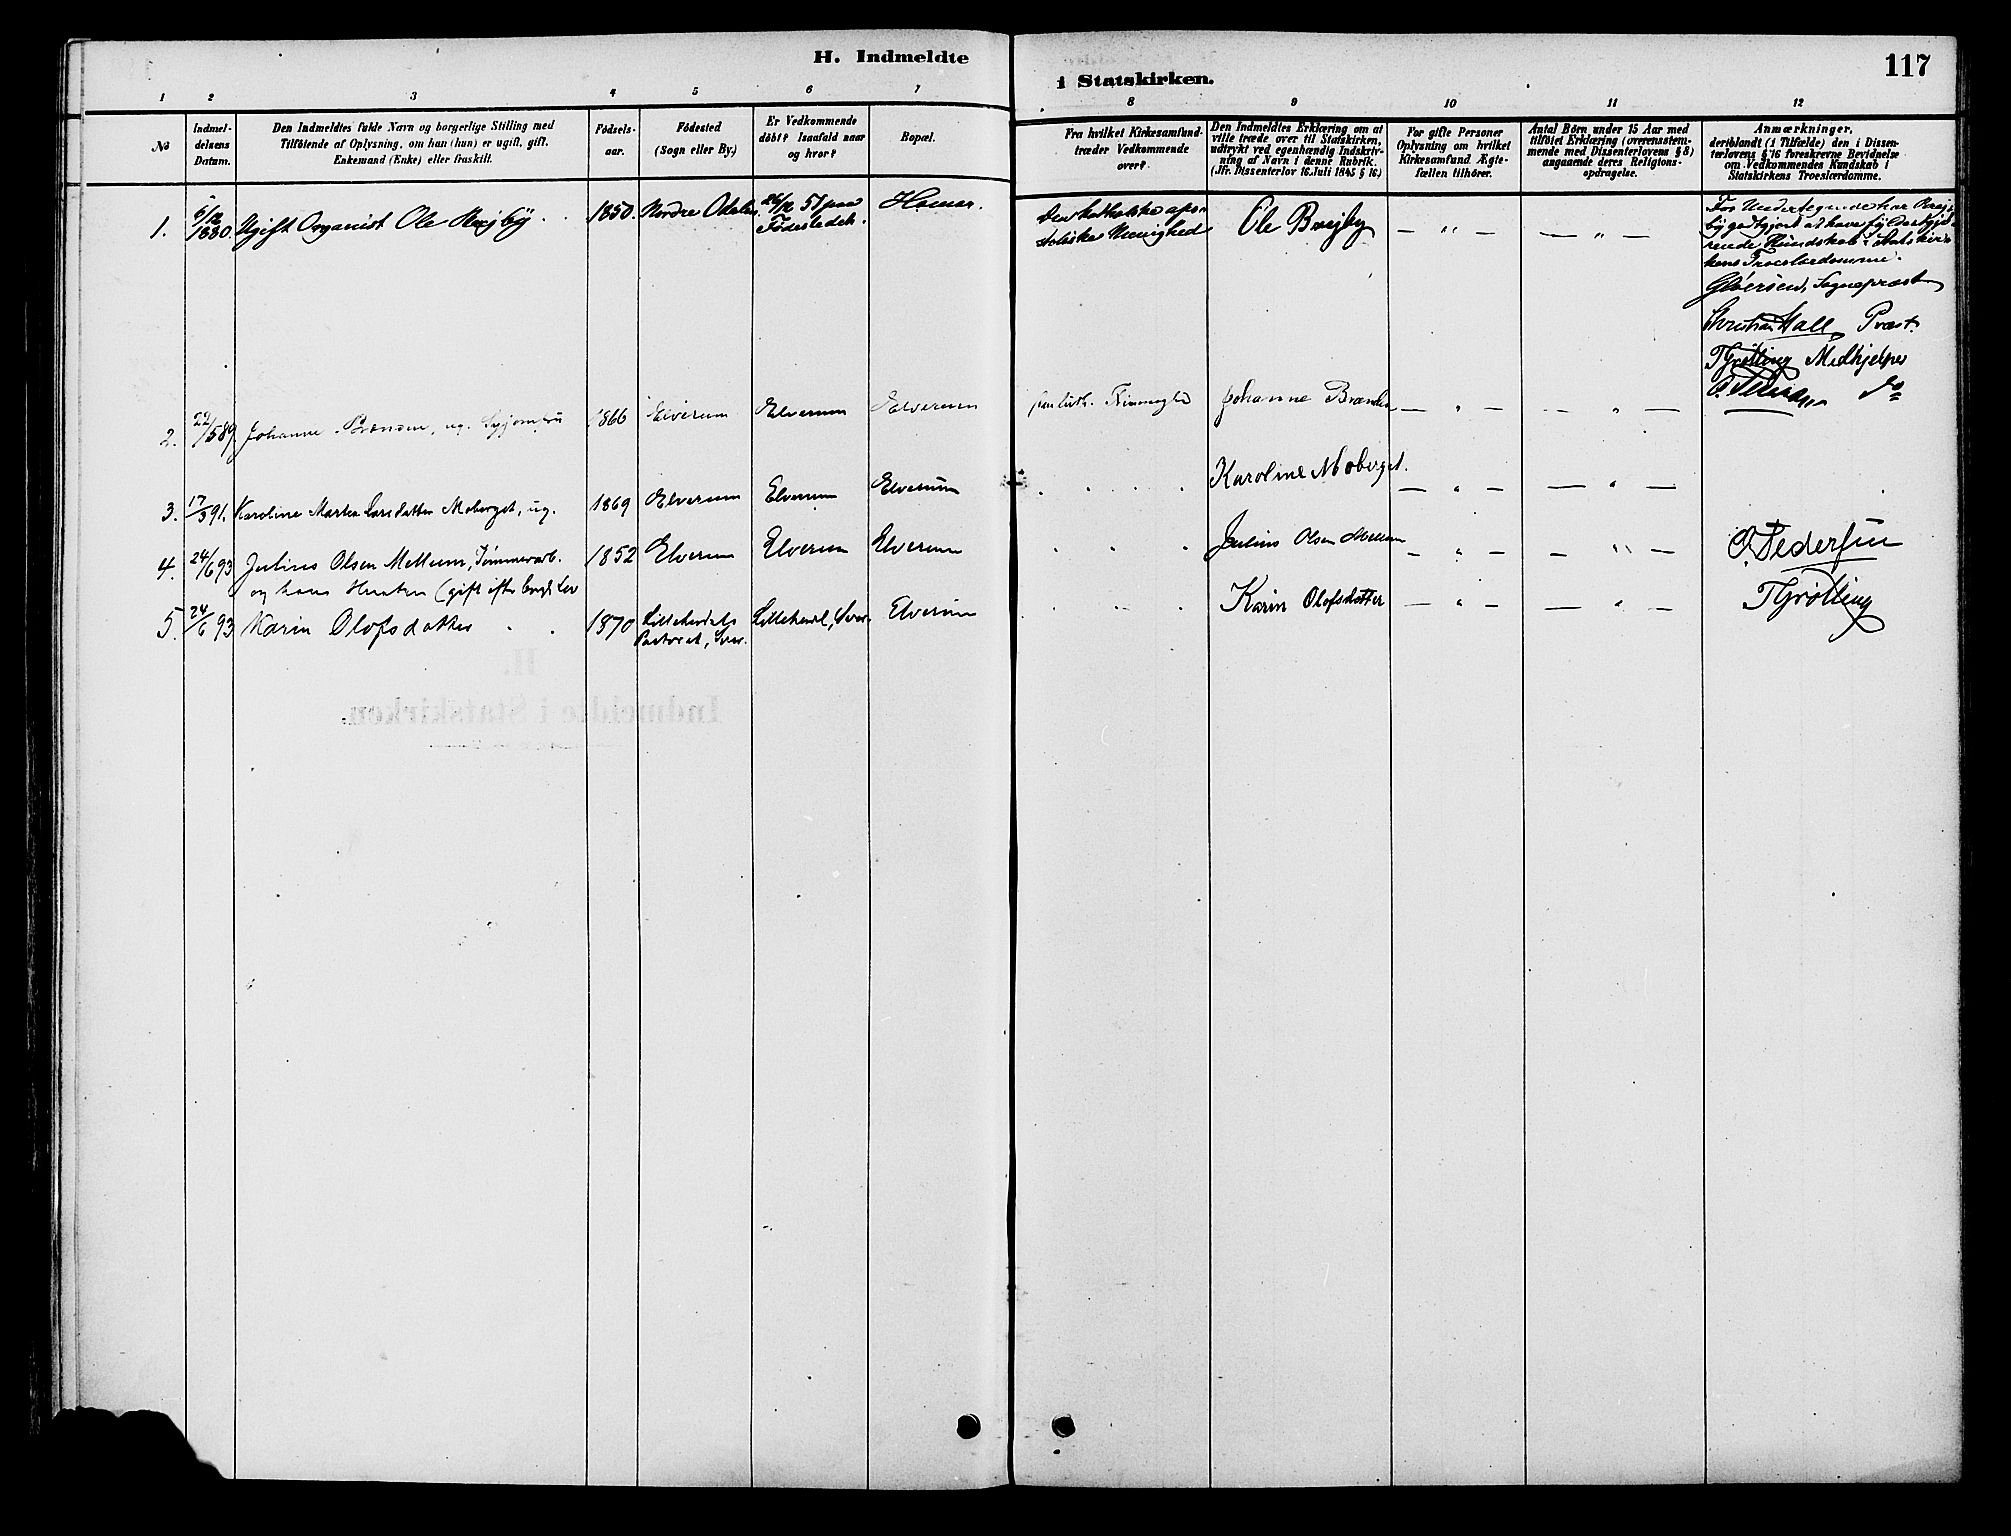 H. Indmeldte
i Statskirken.
117
1 2 3 4 5 6 7
8 9 10 11 12
No
Indmel-
delsens
Datum.
Den Indmeldtes fulde Navn og borgerlige Stilling med
Tilföiende af Oplysning, om han (hun) er ugift, gift,
Enkemand (Enke) eller fraskilt.
Födsels-
aar.
Födested
(Sogn eller By.)
Er Vedkommende
döbt? Isaafald naar
og hvor?
Bopæl.
Fra hvilket Kirkesamfund
træder Vedkommende
over?
Den Indmeldtes Erklæring om at
ville træde over til Statskirken,
udtrykt ved egenhændig Indskriv-
ning af Navn i denne Rubrik.
(Jfr. Dissenterlov 16. Juli 1845 § 16.)
For gifte Personer
Oplysning om hvilket
Kirkesamfund Ægte-
fællen tilhörer.
Antal Börn under 15 Aar med
tilföiet Erklæring (overensstem-
mende med Dissenterlovens § 8)
angaaende deres Religions-
opdragelse.
Anmærkninger,
deriblandt (i Tilfælde) den i Dissen-
terlovens § 16 foreskrevne Bevidnelse
om Vedkommendes Kundskab i
Statskirkens Troeslærdomme.
1. 6/12 1880. Ugift Organist Ole Brejby 1850. Nordre Odalen. 26/12 51 paa
Födestedet. Hamar.
Den katholske apo-
stoliske Menighed Ole Brejby — " — — " —
For Undertegnede har Brej-
by godtgjort at have fyldestgjö-
rende Kundskab i Statskir-
kens Troeslærdomme.
Sognepræst
Christian Hall, Præst.
T Grötting Medhjelper
O. Pedersen do
2. 22/5 89. Johanne ug. Syjomfru 1866 Elverum Elverum Elverum
Johanne — " — — " —
3. 17/3 91. Karoline Marten Larsdatter Moberget, ug. 1869 Elverum Elverum Elverum
" " " " Karoline Moberget. — " — — " —
4. 24/6 93 Julius Olsen Mellum, Tömmerarb. 1852 Elverum Elverum Elverum
og hans Hustru (gift efter
" " " Julius Olsen Mellum — " — — " — O. Pedersen
5. 24/6 93 Karin Olofsdatter 1870 Lilleherdals
Pastorat, Sver. Lilleherdal, Sver. Elverum
" " " Karin Olofsdotter — " — — " — T Grötting
H.
Indmeldte i Statskirken.